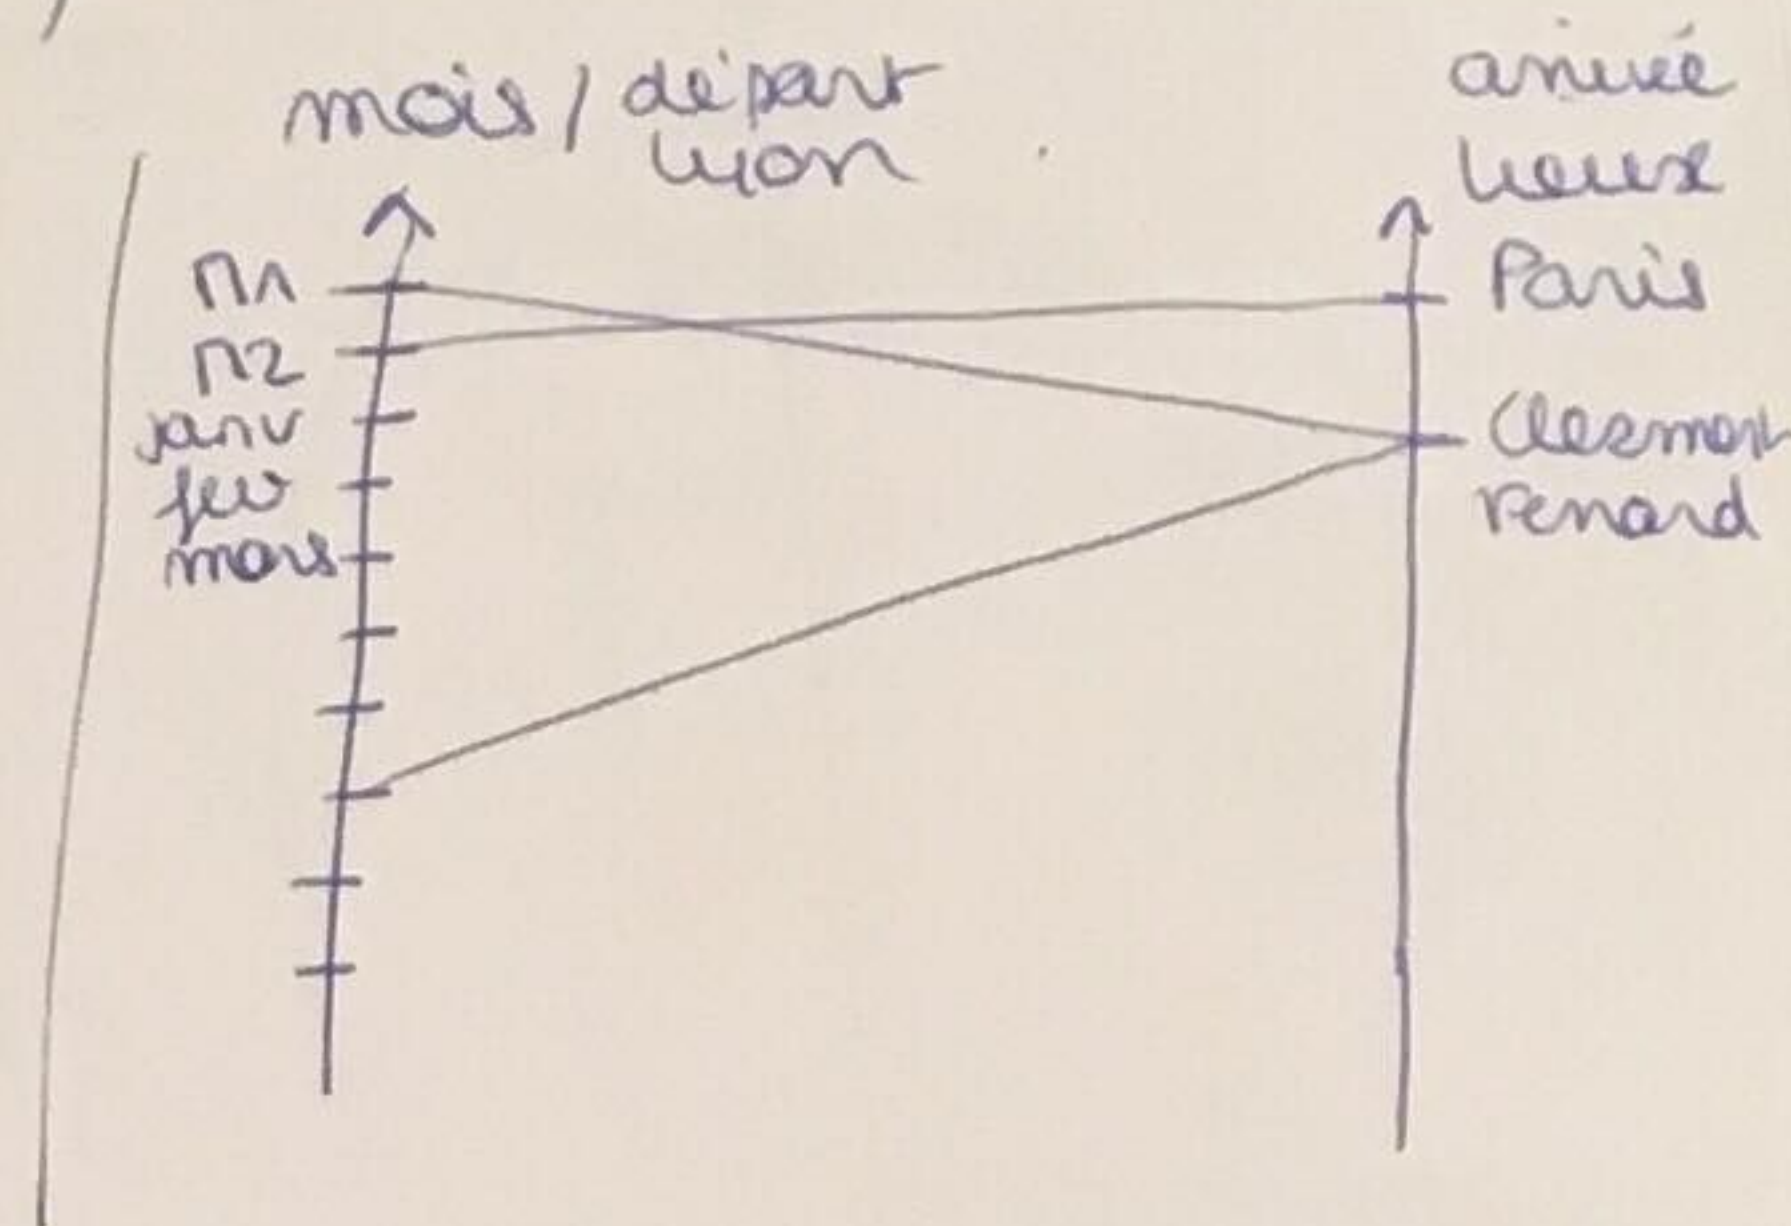 mois / départ
Lyon
arrivée
lieux
M1
M2
janv
fev
mars
Paris
Clermont
renard